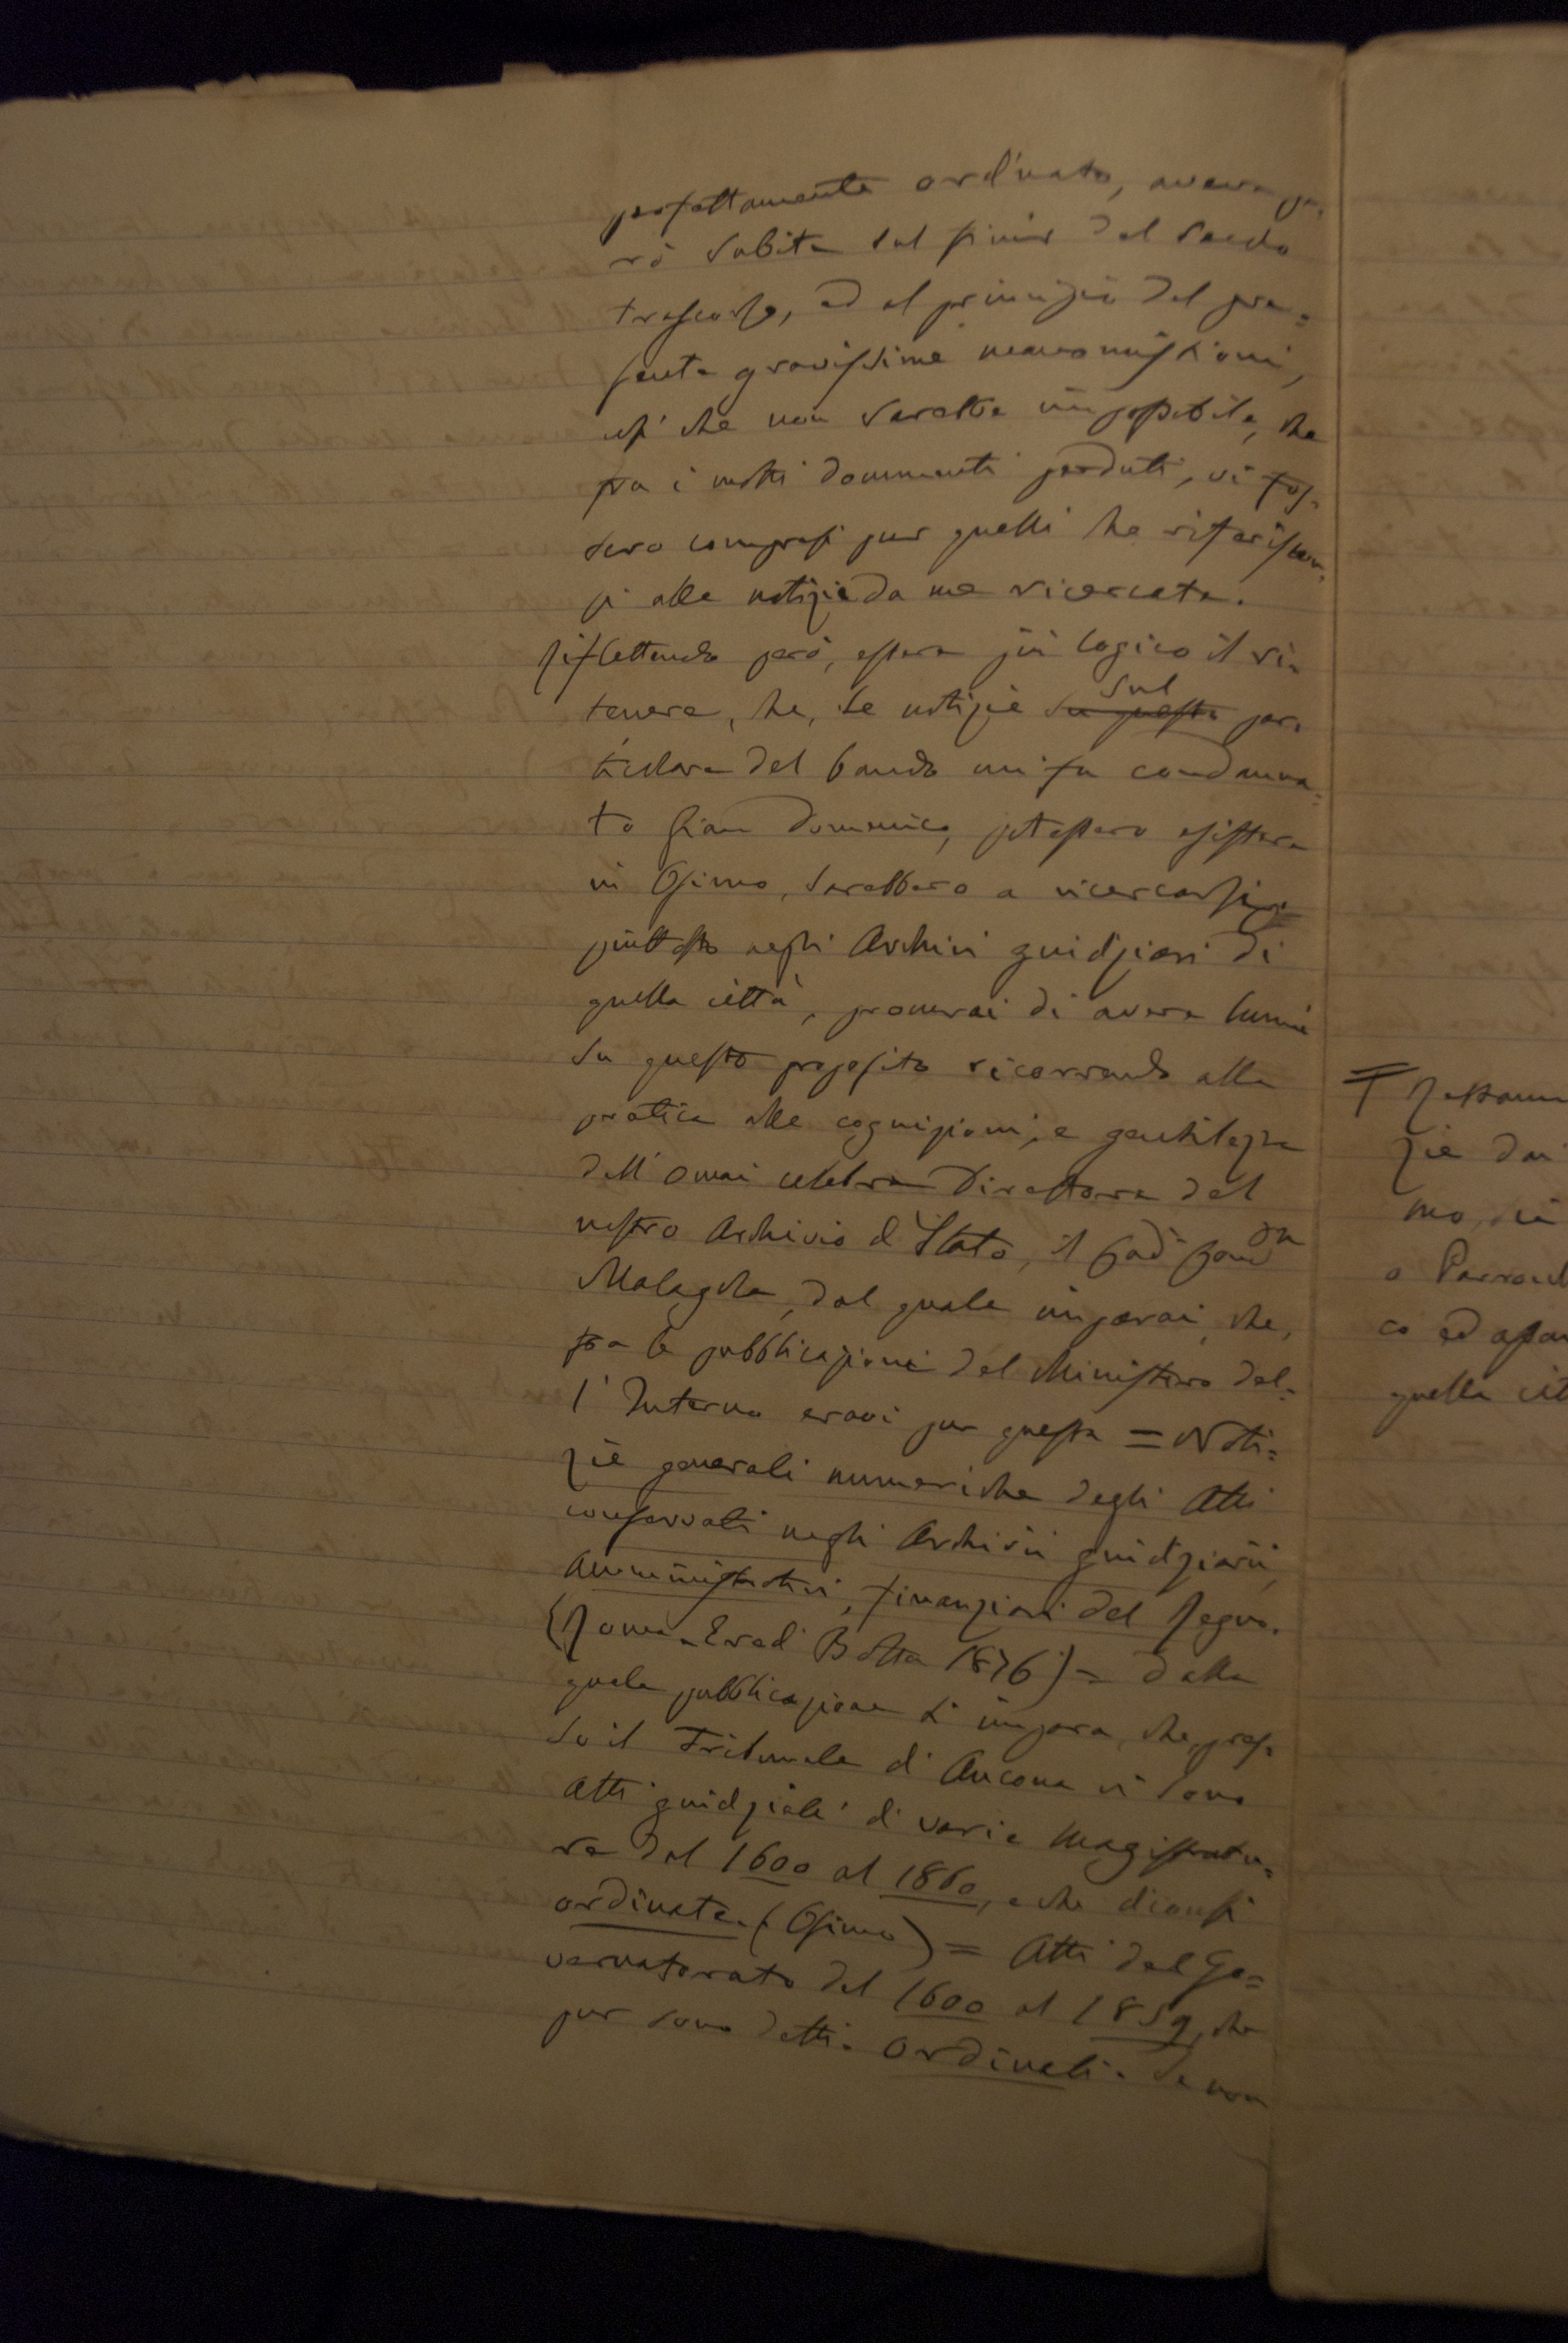 perfettamente ordinato, aveva pe-
rò subite sul finir del secolo
trascorso, ed al principio del pre=
sente gravissime manomissioni,
che non sarebbe impossibile, che
fra i molti documenti perduti, vi fos-
sero compresi pur quelli che riferiscon-
si alle notizie da me ricercate.
Riflettendo però, essere più logico il ri-
tenere, che, se notizie su questo sul par-
ticolare del bando cui fu condanna=
to Gian Domenico, potessero esistere
in Osimo, sarebbero a ricercarsi
piuttosto negli Archivi giudiziari di
quella città, procurai di avere lumi
su questo proposito ricorrendo alla
pratica alle cognizioni, e gentilezza
dell'omai celebre Direttore del
nostro Archivio di Stato, il
Malagola, dal quale imparai, che,
fra le pubblicazioni del Ministero del=
l'Interno eravi pur questa = Noti=
zie generali numeriche degli Atti
conservati negli Archivii giudiziarii,
amministrativi, finanziari del Regno.
(Roma - Eredi Botta 1876) = dalla
quale pubblicazione si impara, che, pres-
so il Tribunale di Ancona vi sono
Atti giudiziali di varie Magistratu=
re dal 1600 al 1860, e che diconsi
ordinate. (Osimo) = Atti del Go=
vernatorato dal 1600 al 1859, che
pur sono detti. ordinati. Se non
zie dai
mo,
co ed
quella cit